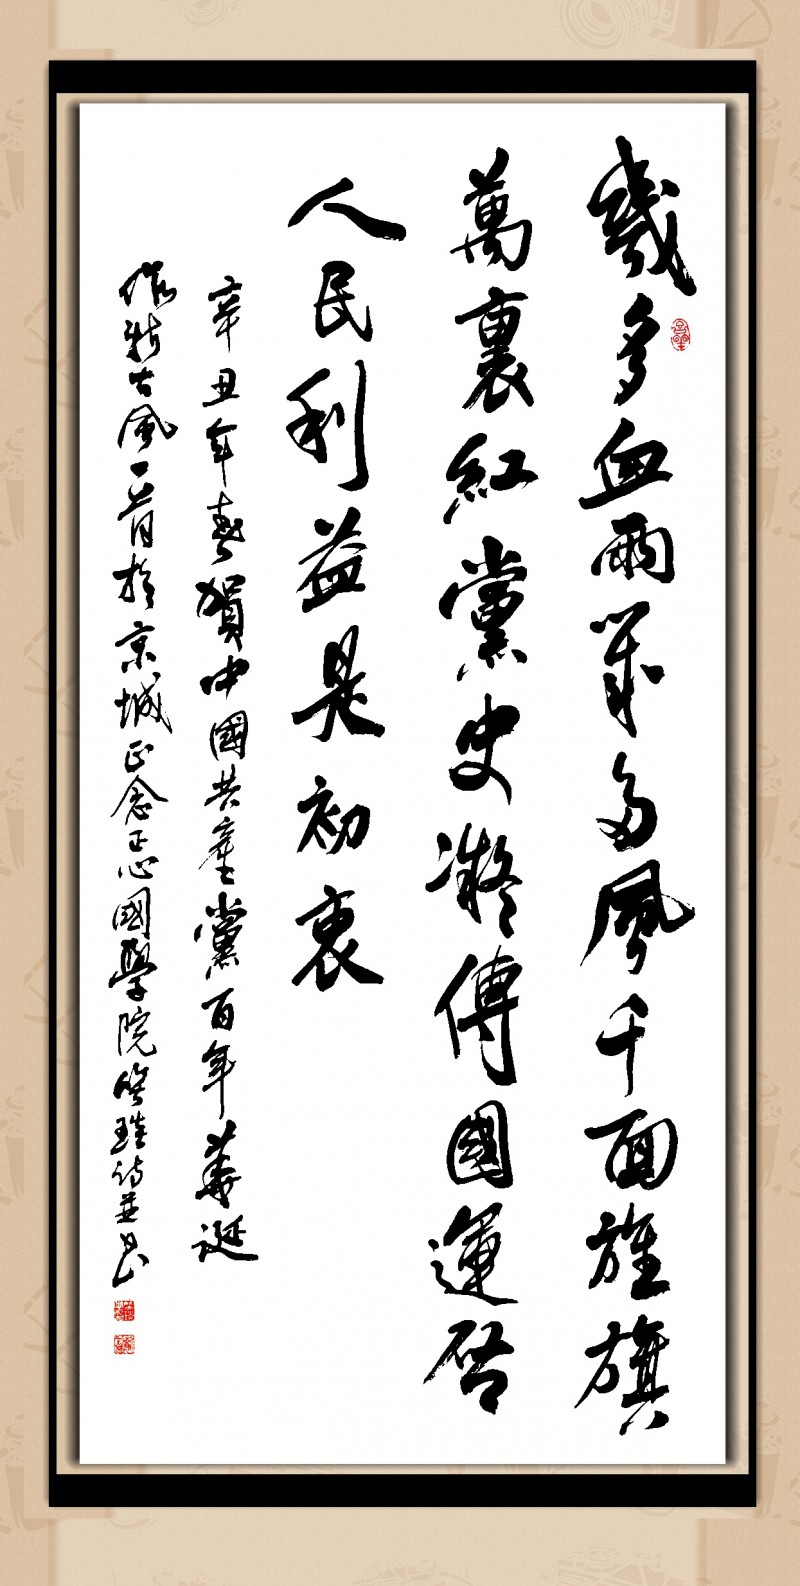 幾多血雨幾多風千面旌旗
萬裏紅黨史凝傳國運啓
人民利益是初衷
辛丑年春賀中國共產黨百年華誕
作新古風一首於京城正念正心國學院詩並書